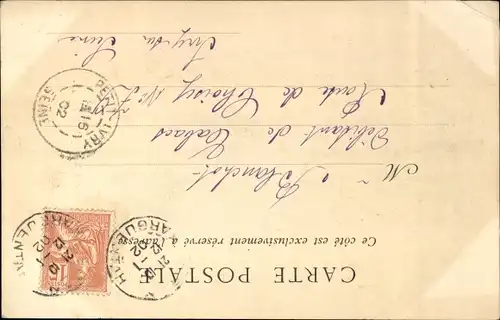 CARTE POSTALE
Ce côté est exclusivement réservé à l'adresse
M Blanchot
Débitant de Tabacs
Route de Choisy Nº
Ivry sur Seine
PETIT-IVRY
16
02
SEINE
ARGUENTA
ARGUENTA